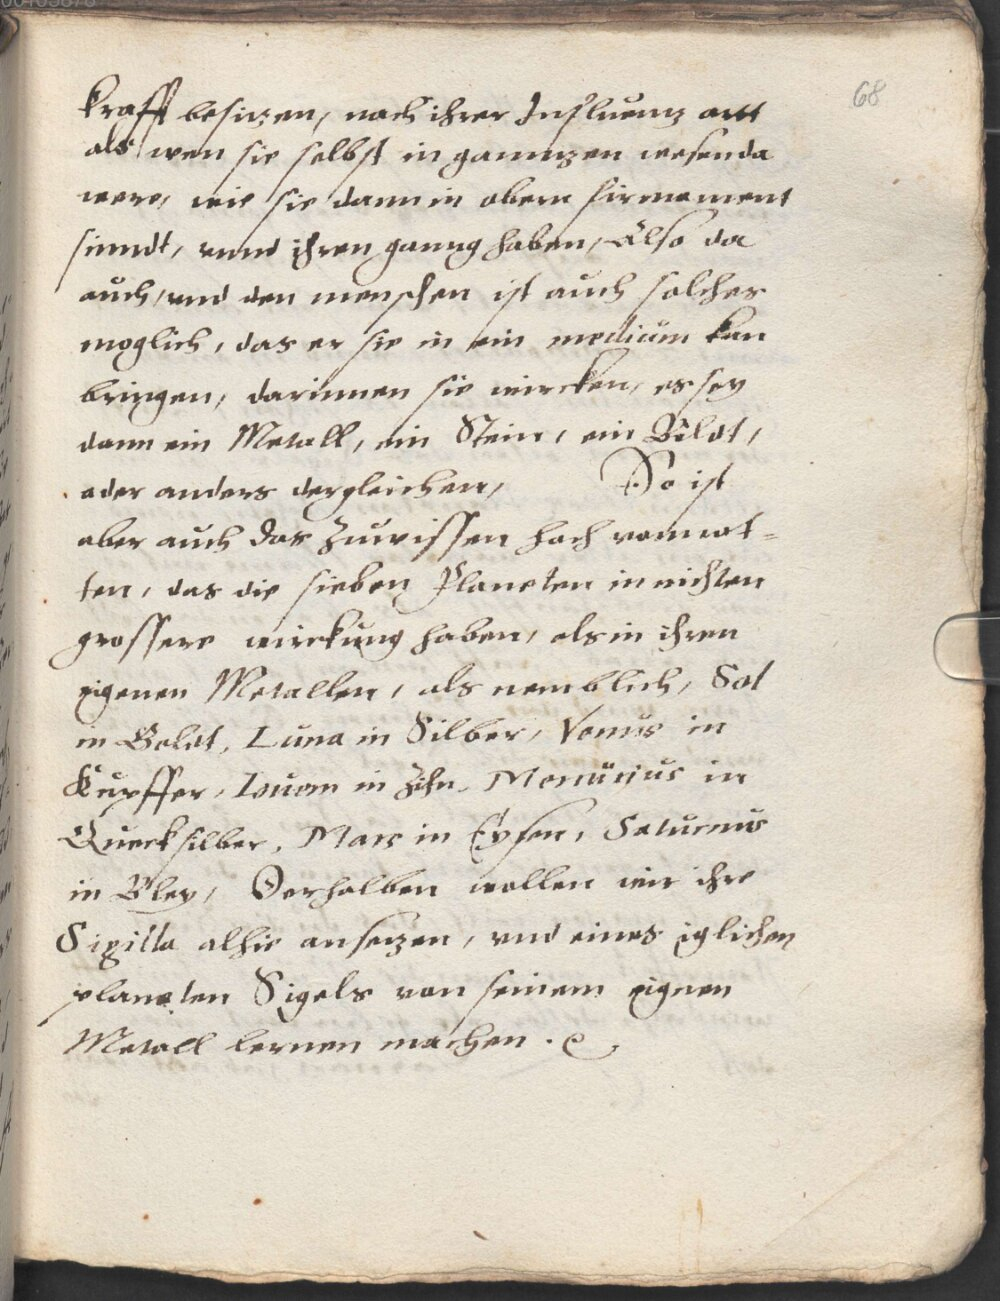 68
krafft besitzen, nach ihrer Influentz artt
als wen sie selbst in ganntzen wesenda
were, wie sie dann in obern firmament
sinndt, vnnd ihren ganng haben, Also da
auch, vnd den menschen ist auch solches
moglich, das er sie in ein medium kan
bringen, darinnen sie wircken, es sey
dann ein Metall, ein Stein, ein Bildt,
oder anders dergleichen, So ist
aber auch das zuwissen hoch vonnot=
ten, das die sieben Planeten in nichten
grossere wirckung haben, als in ihren
eigenen Metallen, als nemblich, Sol
in Goldt, Luna in Silber, Venus in
Kupffer, Iouem in Zihn, Mercurius in
Quecksilber, Mars in Eysen, Saturnus
in Bley, Derhalben wollen wir ihre
Sigilla alhie ansetzen, vnd eines iglichen
planeten Sigels von seinem eignen
Metall lernen machen.